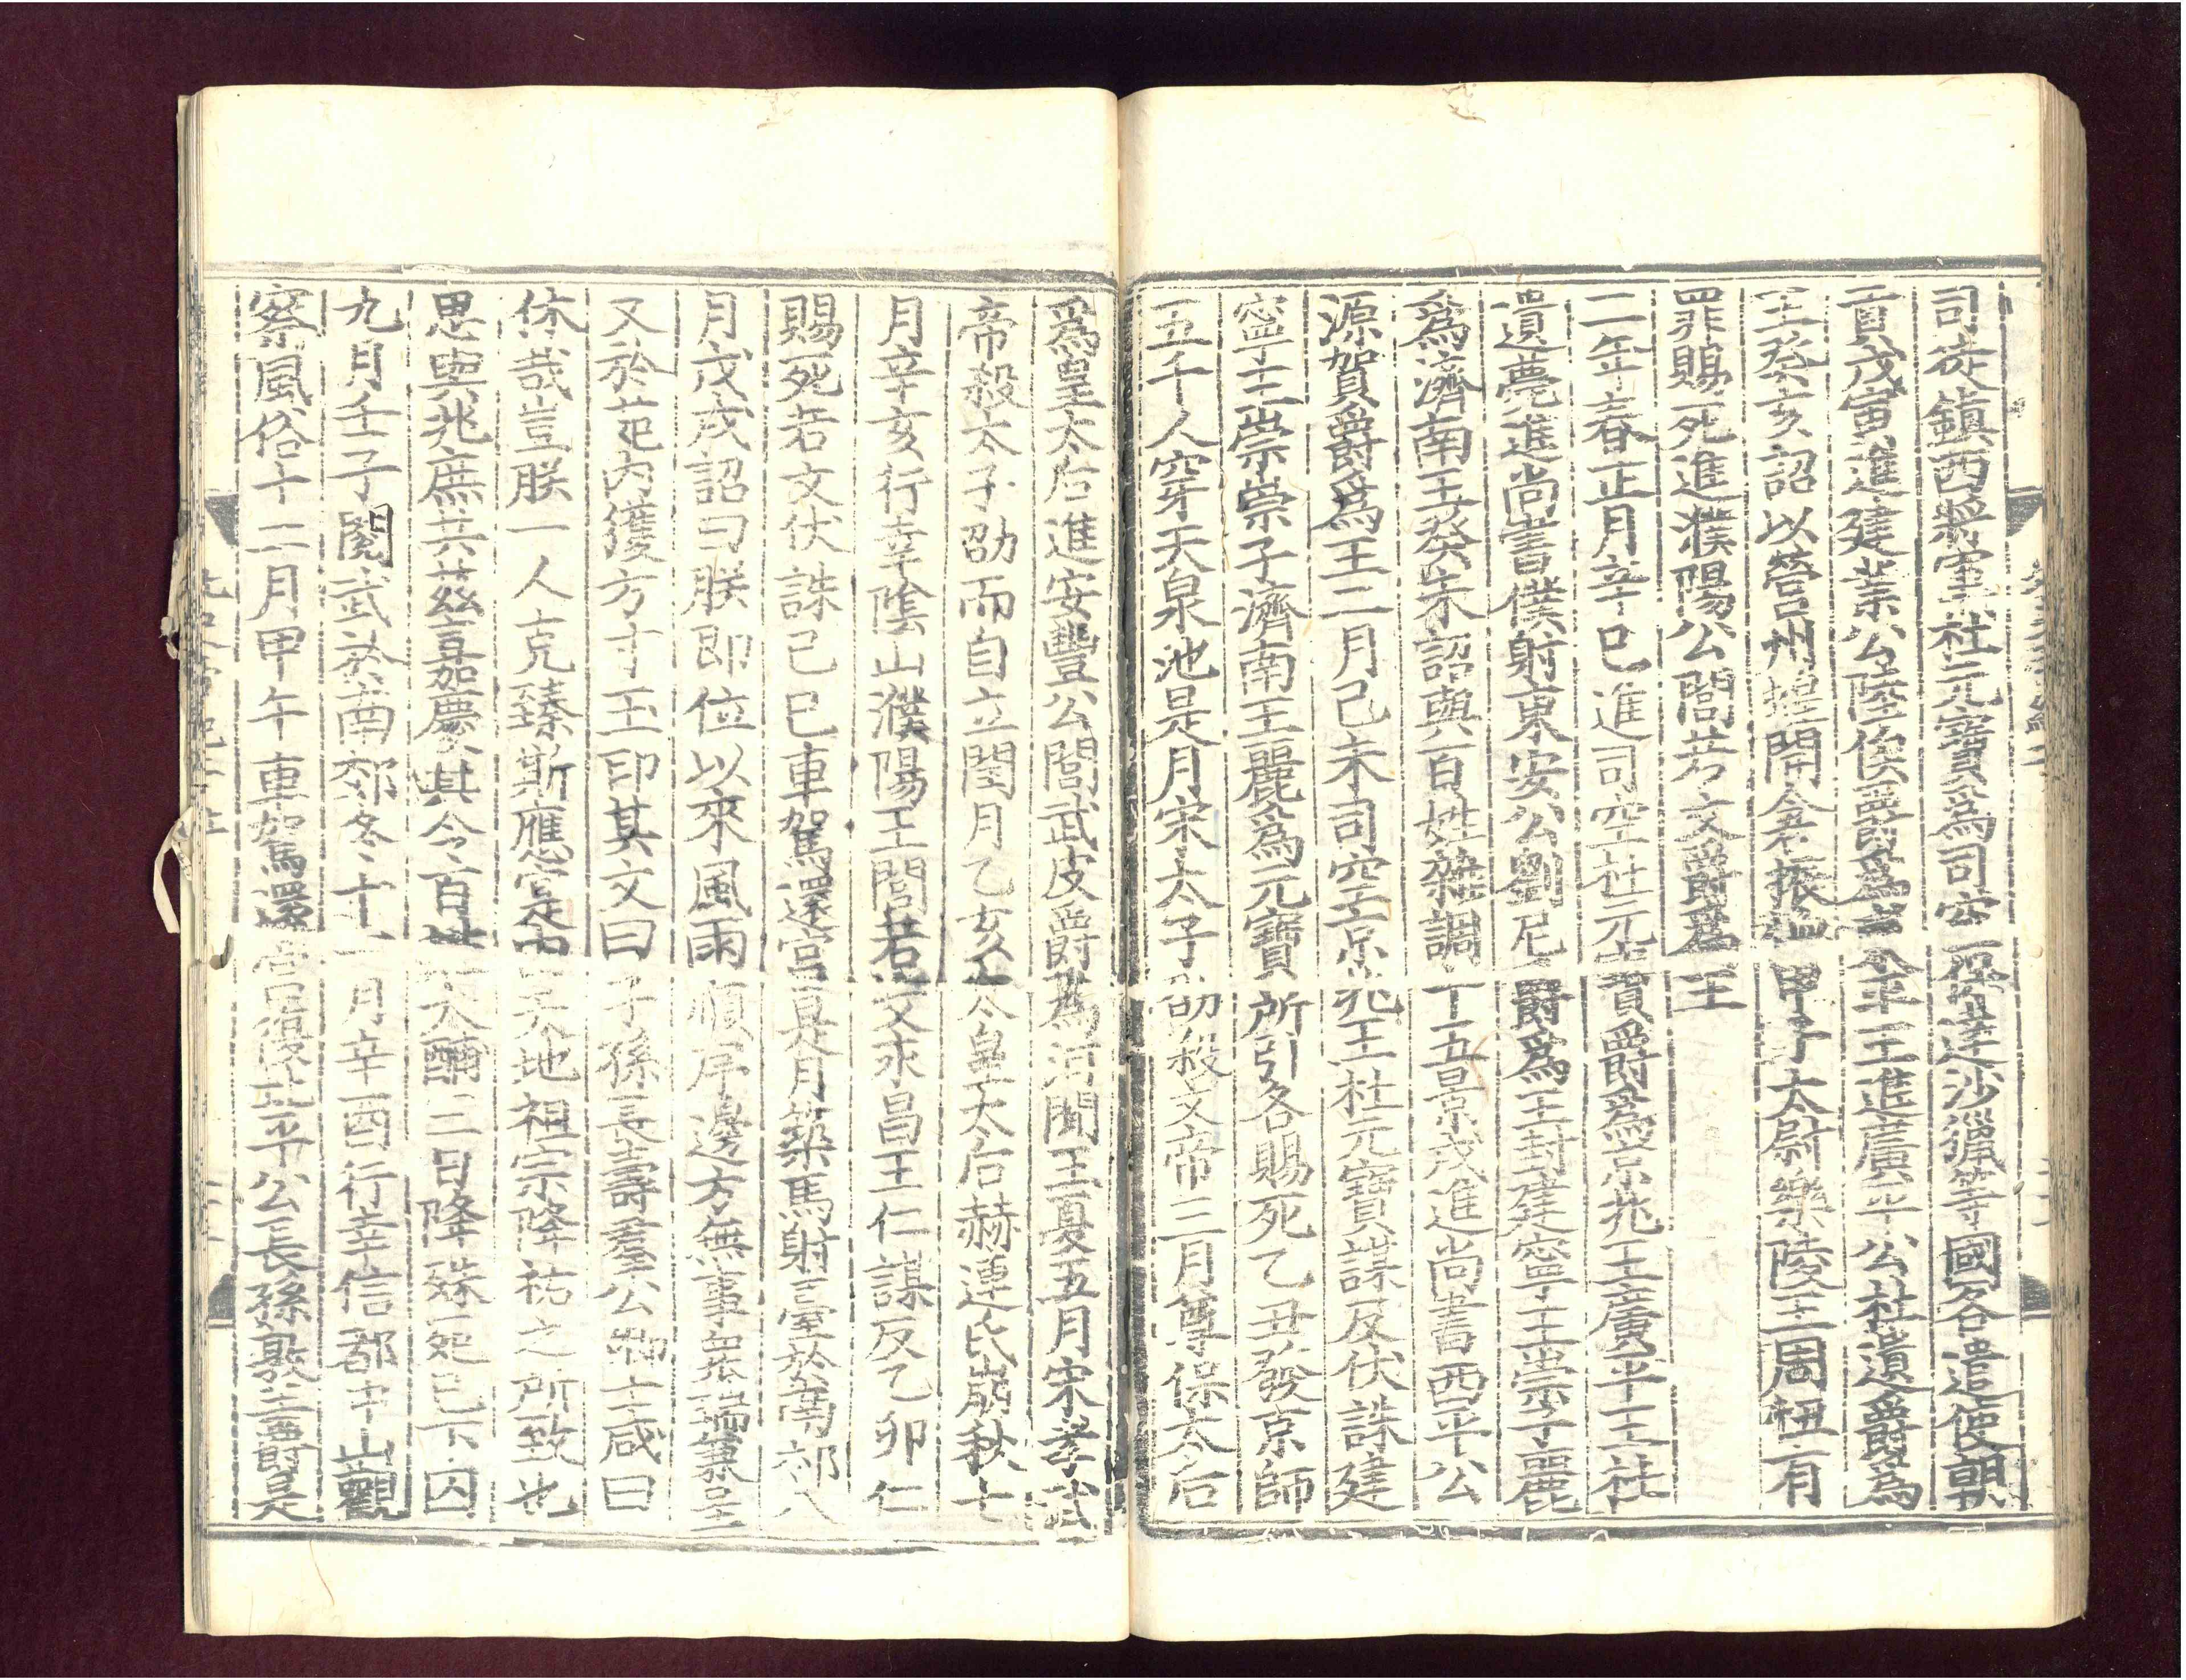 司徒鎮西將軍杜元寶爲司空 保達沙獵等國各遣使朝
貢戊寅進建業公陸俟爵爲東平王進廣平公杜遺爵爲
王癸亥詔以營州蝗開倉振恤甲子太尉樂陵王周忸有
罪賜死進濮陽公閭若文爵爲王
二年春正月辛巳進司空杜元寶爵爲京兆王廣平王杜
遺薨進尚書僕射東安公劉尼爵爲王封建寧王崇子麗
爲濟南王癸未詔與百姓雜調丁五景戌進尚書西平公
源賀爵爲王二月己未司空京兆王杜元寶謀反伏誅建
寧王崇崇子濟南王麗爲元寶所引各賜死乙丑發京師
五千人穿天泉池是月宋太子劭殺文帝三月尊保太后
爲皇太后進安豐公閭武皮爵爲河間王夏五月宋孝武
帝殺太子劭而自立閏月乙亥太皇太后赫連氏崩秋七
月辛亥行幸陰山濮陽王閭若文永昌王仁謀反乙卯仁
賜死若文伏誅己巳車駕還宮是月築馬射臺於南郊八
月戊戌詔曰朕即位以來風雨順序邊方無事衆瑞兼呈
又於苑內獲方寸玉印其文曰子孫長壽羣公卿士咸曰
休哉豈朕一人克臻斯應實由天地祖宗降祐之所致也
思與兆庶共茲嘉慶其令百姓大酺三日降殊死已下囚
九月壬子閱武於南郊冬十一月辛酉行幸信都中山觀
察風俗十二月甲午車駕還宮復北平公長孫敦王爵是